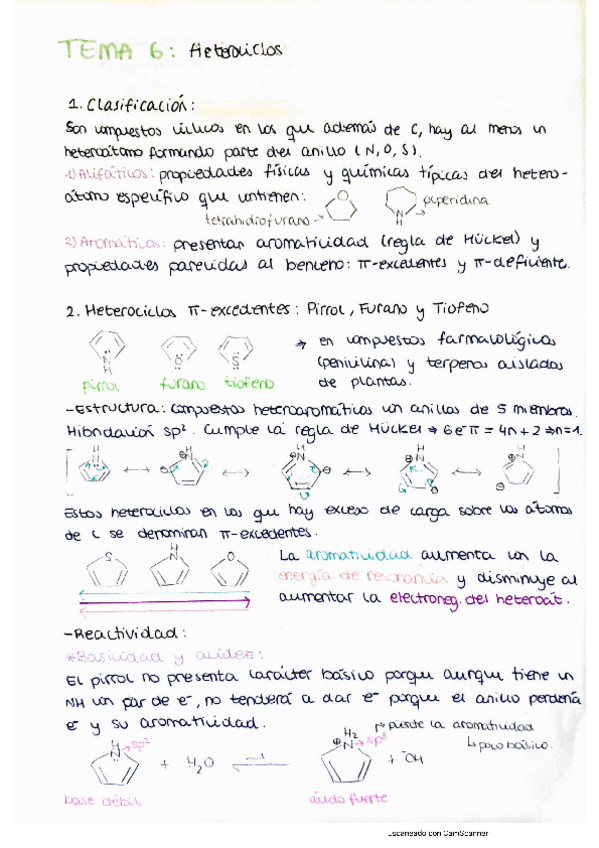 TEMA 6: Heterociclos
1. Clasificación:
Son compuestos cíclicos en los que además de C, hay al menos un
heteroátomo formando parte del anillo (N, O, S).
1) Alifáticos: propiedades físicas y químicas típicas del hetero-
átomo específico que contienen:
O
N
H
piperidina
tetrahidrofurano
2) Aromáticos: presentan aromaticidad (regla de Hückel) y
propiedades parecidas al benceno: π-excedentes y π-deficiente.
2. Heterociclos π-excedentes: Pirrol, Furano y Tiofeno
N
H
O
S
→ en compuestos farmacológicos
(penicilina) y terpenos aislados
de plantas.
pirrol furano tiofeno
-Estructura: compuestos heteroaromáticos con anillos de 5 miembros.
Hibridación sp². Cumple la regla de Hückel ⇒ 6e⁻π = 4n+2 ⇒ n=1.
H H H H H
N N N N N
Estos heterociclos en los que hay exceso de carga sobre los átomos
de C se denominan π-excedentes.
S
H
N
O
La aromaticidad aumenta con la
energía de resonancia y disminuye al
aumentar la electroneg. del heteroát.
-Reactividad:
*Basicidad y acidez:
El pirrol no presenta carácter básico porque aunque tiene un
NH con par de e⁻, no tenderá a dar e⁻ porque el anillo perdería
e⁻ y su aromaticidad.
pierde la aromaticidad
↳ poco básico.
H
N → sp²
+ H₂O ⇌
H₂
⊕N → sp³
+ ⁻OH
base débil
ácido fuerte
Escaneado con CamScanner